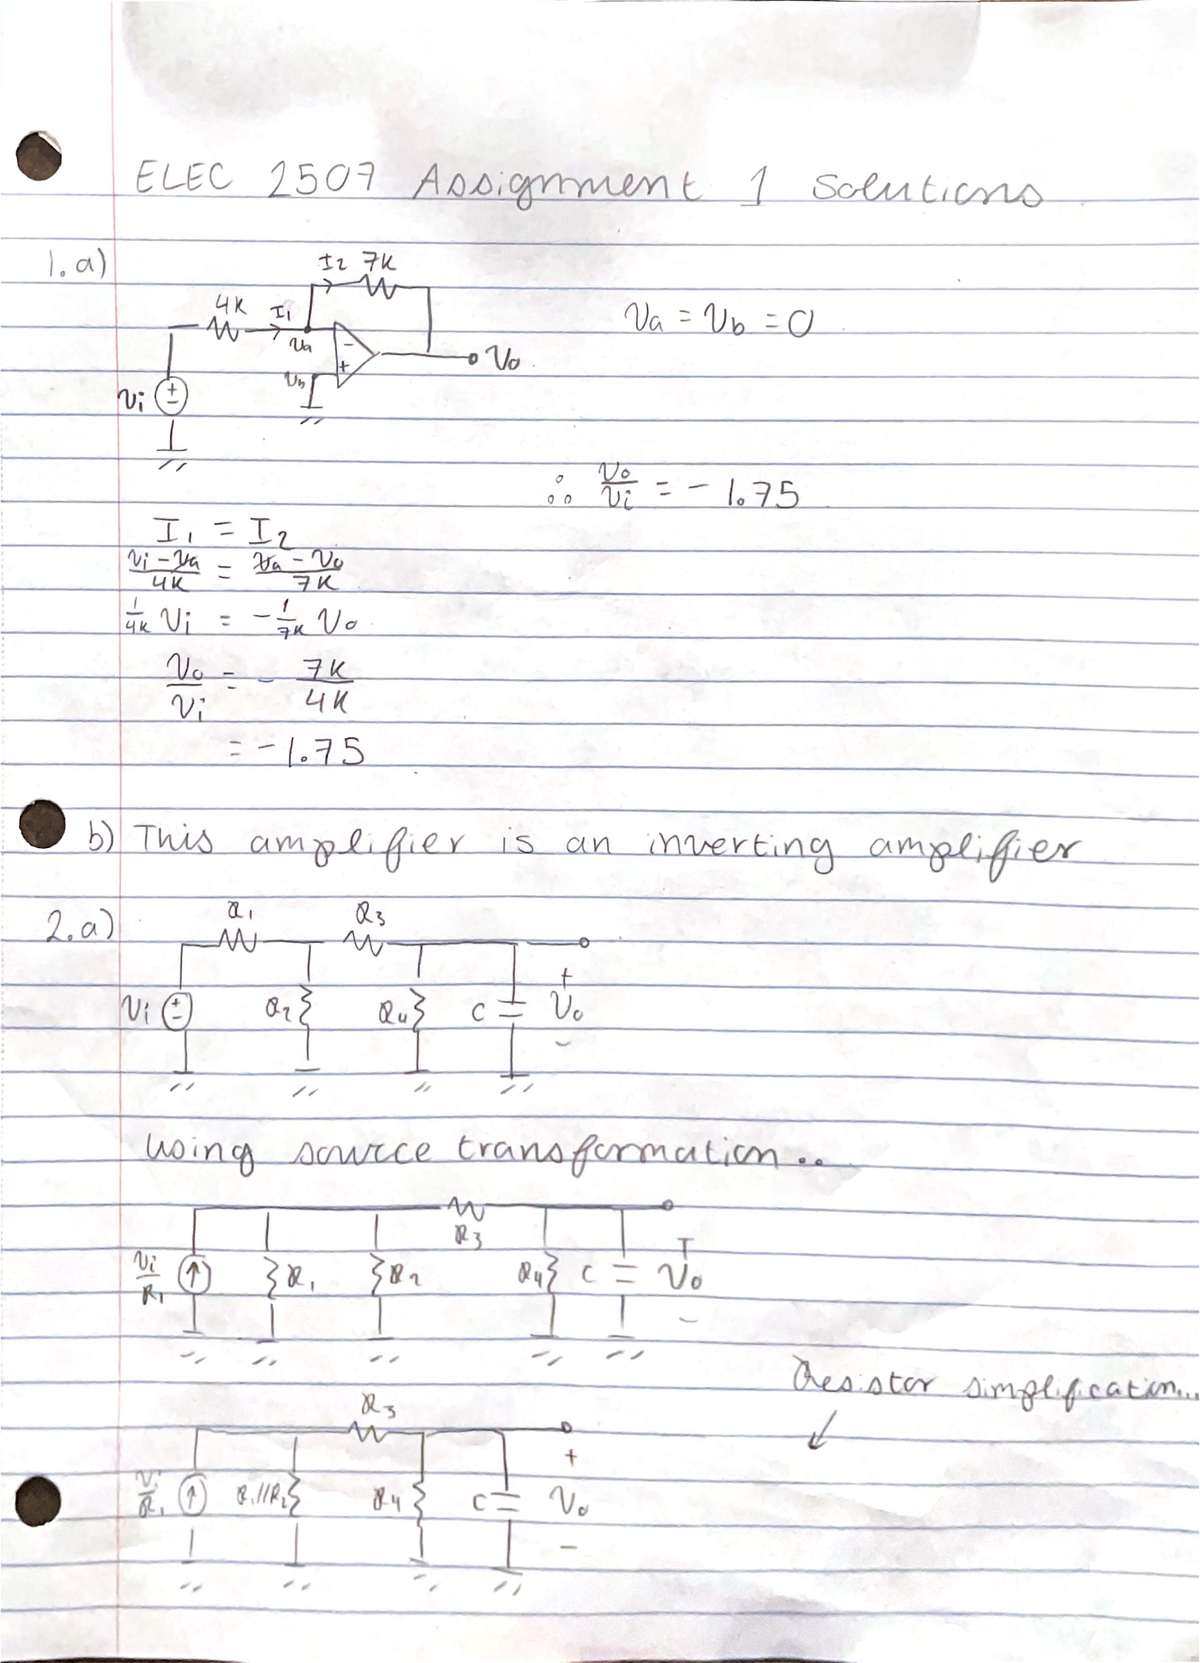 ELEC 2507 Assignment 1 Solutions
1. a)
I2 7K
4K I1
Va
Vb
Vi
+
-
-
+
Vo
Va = Vb = 0
∴ Vo/Vi = - 1.75
I1 = I2
(Vi - Va)/4K = (Va - Vo)/7K
1/4K Vi = - 1/7K Vo
Vo/Vi = - 7K/4K
= - 1.75
b) This amplifier is an inverting amplifier
2. a)
R1 R3
Vi + - R2 R4 C + Vo -
using source transformation..
R3
Vi/R1 R1 R2 R4 C + Vo -
Resistor simplification...
R3
Vi/R1 R1//R2 R4 C + Vo -